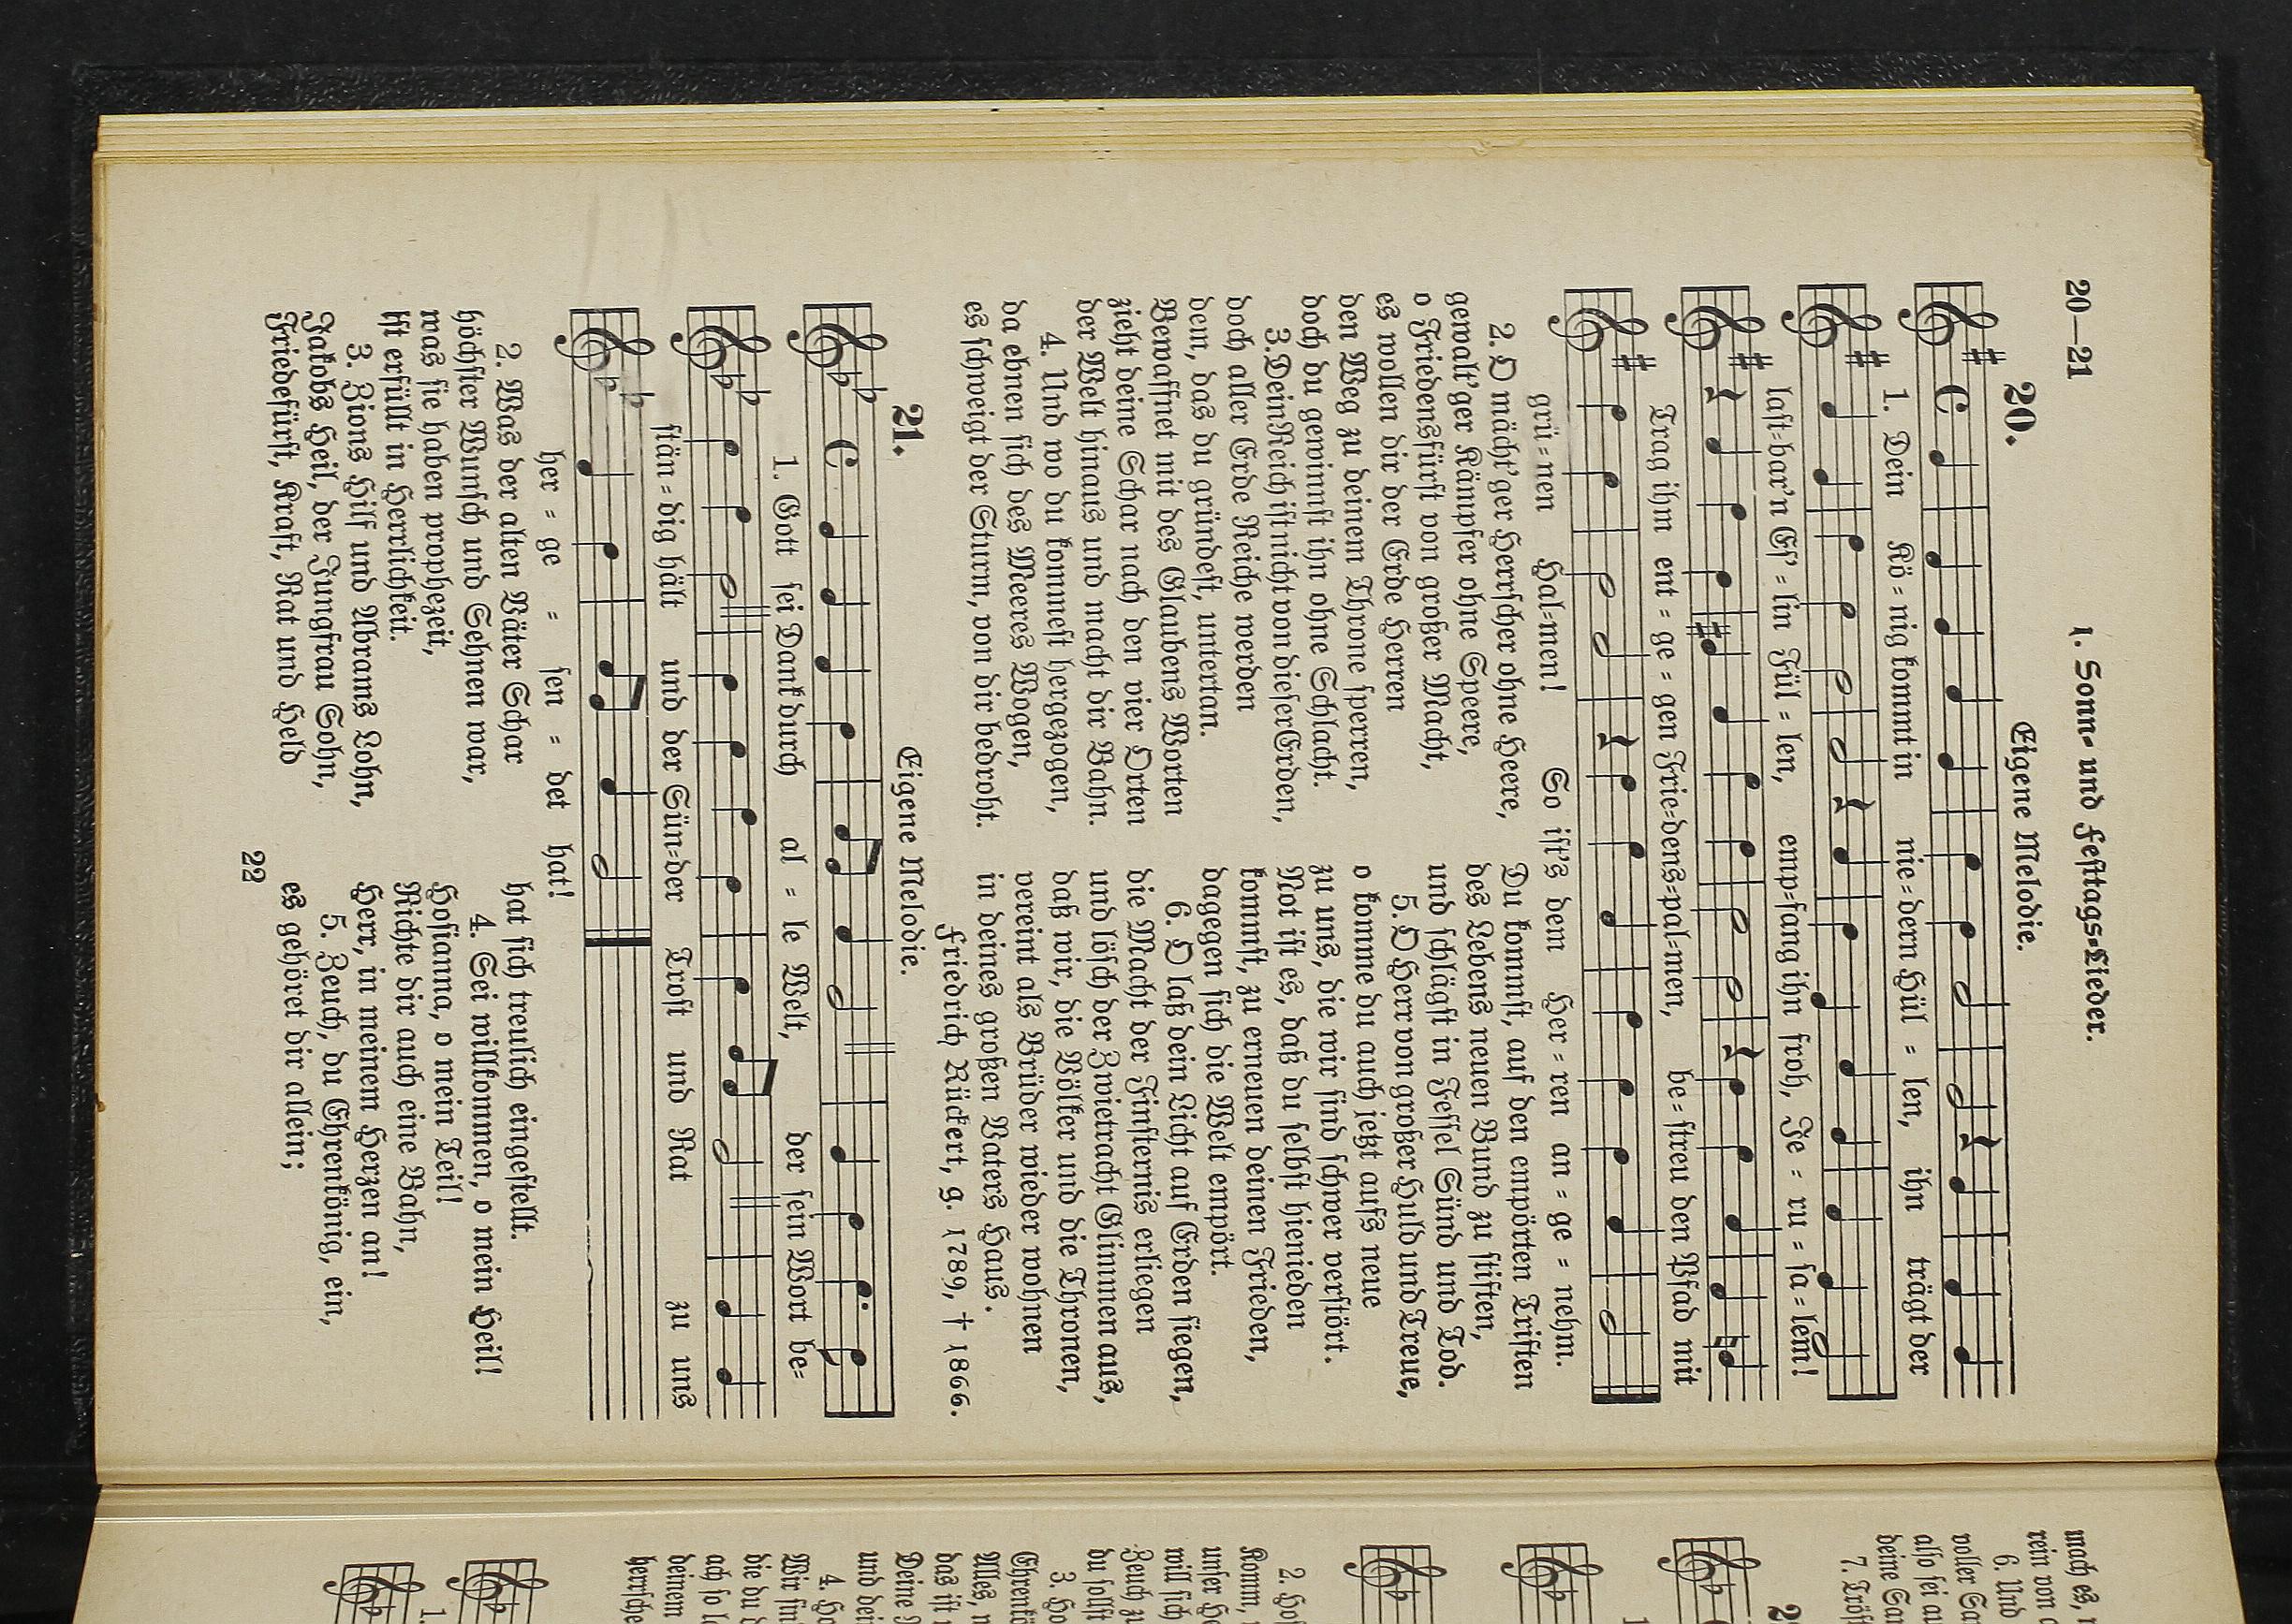 20—21
1. Sonn- und Festtags-Lieder.
20.
Eigene Melodie.
1. Dein Kö = nig kommt in nie = dern Hül = len, ihn trägt der
last=bar'n Es' = lin Fül = len, emp=fang ihn froh, Je = ru = sa = lem!
Trag ihm ent = ge = gen Frie=dens=pal=men, be = streu den Pfad mit
grü = nen Hal=men! So ist's dem Her = ren an = ge = nehm.
2. O mächt'ger Herrscher ohne Heere,
gewalt'ger Kämpfer ohne Speere,
o Friedensfürst von großer Macht,
es wollen dir der Erde Herren
den Weg zu deinem Throne sperren,
doch du gewinnst ihn ohne Schlacht.
3. Dein Reich ist nicht von dieser Erden,
doch aller Erde Reiche werden
dem, das du gründest, untertan.
Bewaffnet mit des Glaubens Worten
zieht deine Schar nach den vier Orten
der Welt hinaus und macht dir Bahn.
4. Und wo du kommest hergezogen,
da ebnen sich des Meeres Wogen,
es schweigt der Sturm, von dir bedroht.
Du kommst, auf den empörten Triften
des Lebens neuen Bund zu stiften,
und schlägst in Fessel Sünd und Tod.
5. O Herr von großer Huld und Treue,
o komme du auch jetzt aufs neue
zu uns, die wir sind schwer verstört.
Not ist es, daß du selbst hienieden
kommst, zu erneuen deinen Frieden,
dagegen sich die Welt empört.
6. O laß dein Licht auf Erden siegen,
die Macht der Finsternis erliegen
und lösch der Zwietracht Glimmen aus,
daß wir, die Völker und die Thronen,
vereint als Brüder wieder wohnen
in deines großen Vaters Haus.
Friedrich Rückert, g. 1789, † 1866.
21.
Eigene Melodie.
1. Gott sei Dank durch al = le Welt, der sein Wort be=
stän = dig hält und der Sün=der Trost und Rat zu uns
her = ge = sen = det hat!
2. Was der alten Väter Schar
höchster Wunsch und Sehnen war,
was sie haben prophezeit,
ist erfüllt in Herrlichkeit.
3. Zions Hilf und Abrams Lohn,
Jakobs Heil, der Jungfrau Sohn,
Friedefürst, Kraft, Rat und Held
hat sich treulich eingestellt.
4. Sei willkommen, o mein Heil!
Hosianna, o mein Teil!
Richte dir auch eine Bahn,
Herr, in meinem Herzen an!
5. Zeuch, du Ehrenkönig, ein,
es gehöret dir allein;
22
mach es,
rein von
6. Und
voller
also sei
deine
7.
2.
Komm,
unser
will sich
Zeuch
du sollst
3.
Alles,
das ist
Deine
und
Wir
die du
ach so
deinem
1.